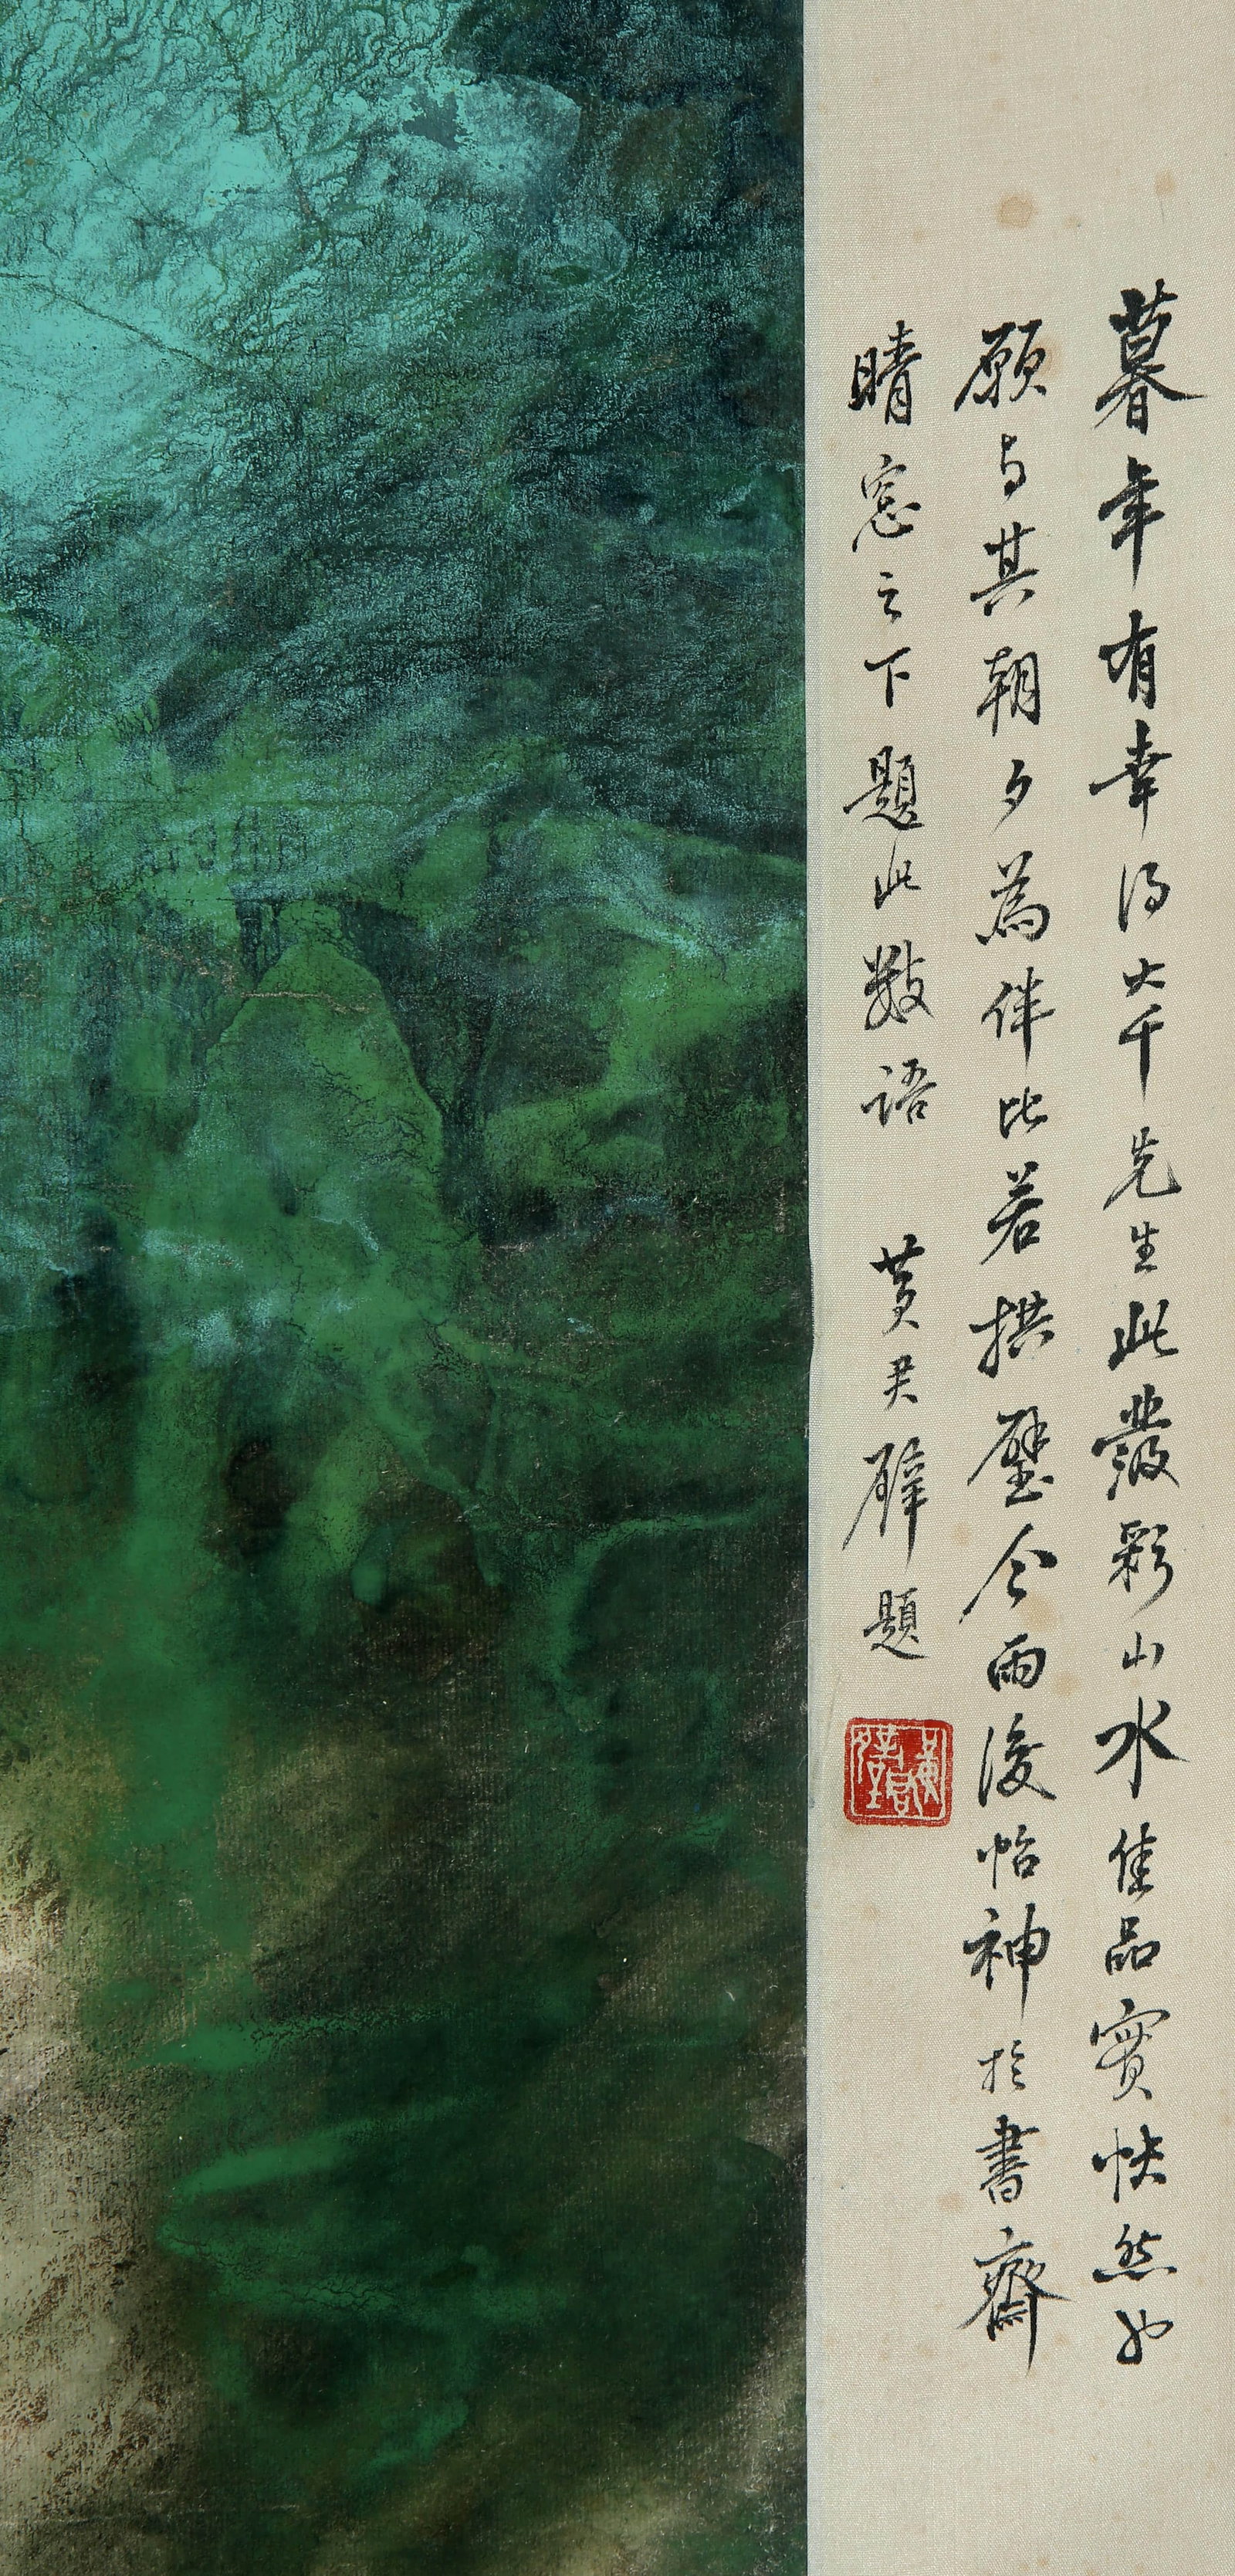 暮年有幸得大千先生此潑彩山水佳品實快然也
願与其朝夕為伴比若拱璧今雨後怡神於書齋
晴窓之下題此數語 黄君璧題